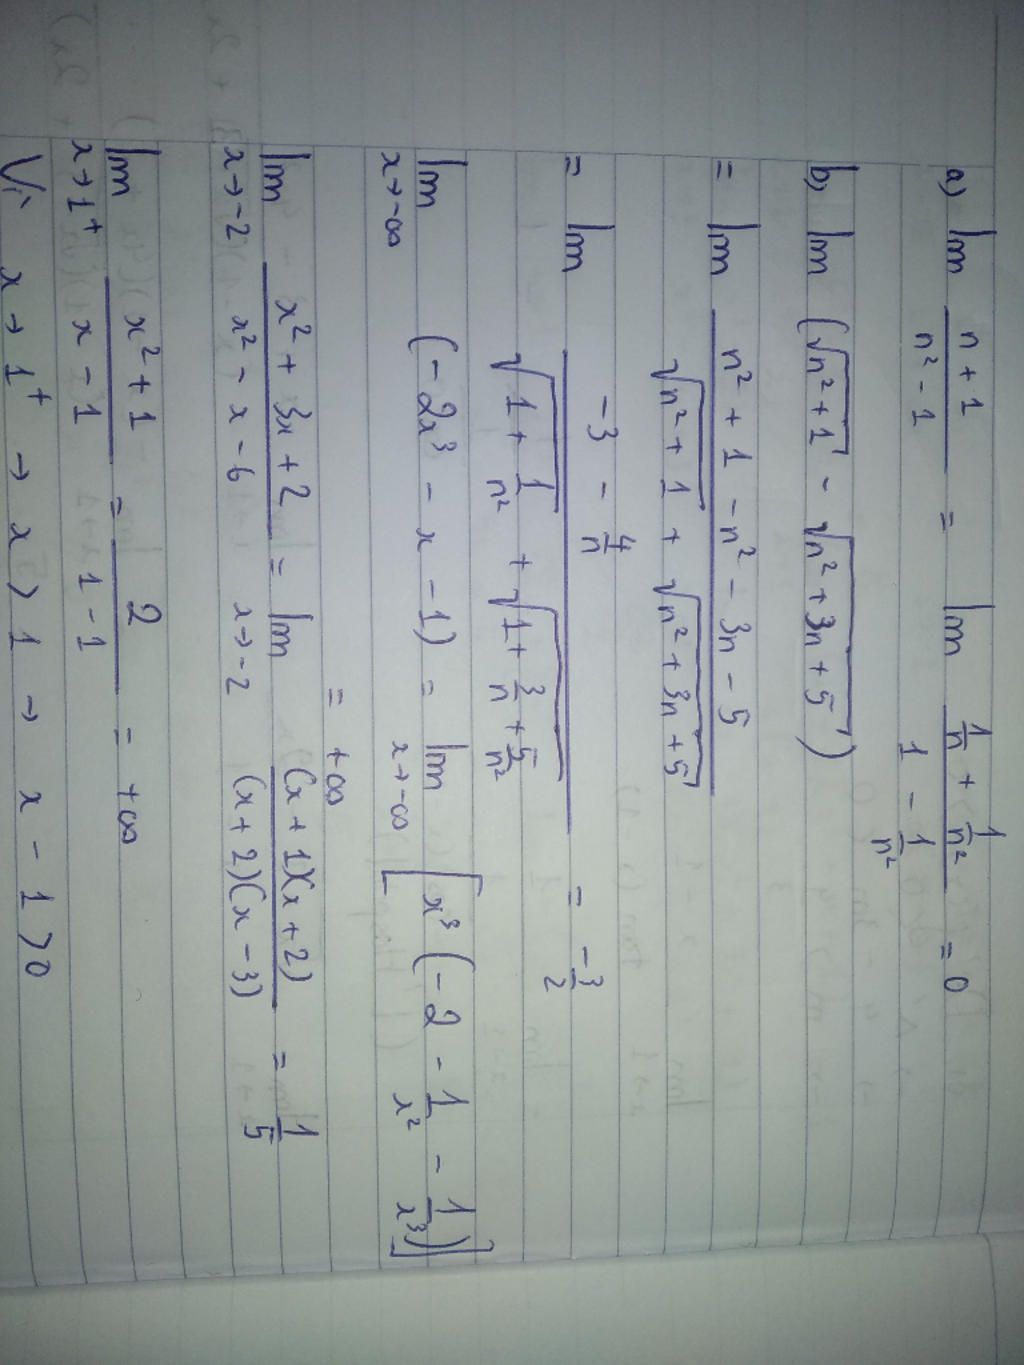 a) lim (n + 1)/(n² - 1) = lim (1/n + 1/n²)/(1 - 1/n²) = 0
b) lim (√(n² + 1) - √(n² + 3n + 5))
= lim (n² + 1 - n² - 3n - 5)/(√(n² + 1) + √(n² + 3n + 5))
= lim (-3 - 4/n)/(√(1 + 1/n²) + √(1 + 3/n + 5/n²)) = -3/2
lim x→-∞ (-2x³ - x - 1) = lim x→-∞ [x³(-2 - 1/x² - 1/x³)]
= +∞
lim x→-2 (x² + 3x + 2)/(x² - x - 6) = lim x→-2 (x + 1)(x + 2)/(x + 2)(x - 3) = 1/5
lim x→1⁺ (x² + 1)/(x - 1) = 2/(1 - 1) = +∞
Vì x → 1⁺ → x > 1 → x - 1 > 0